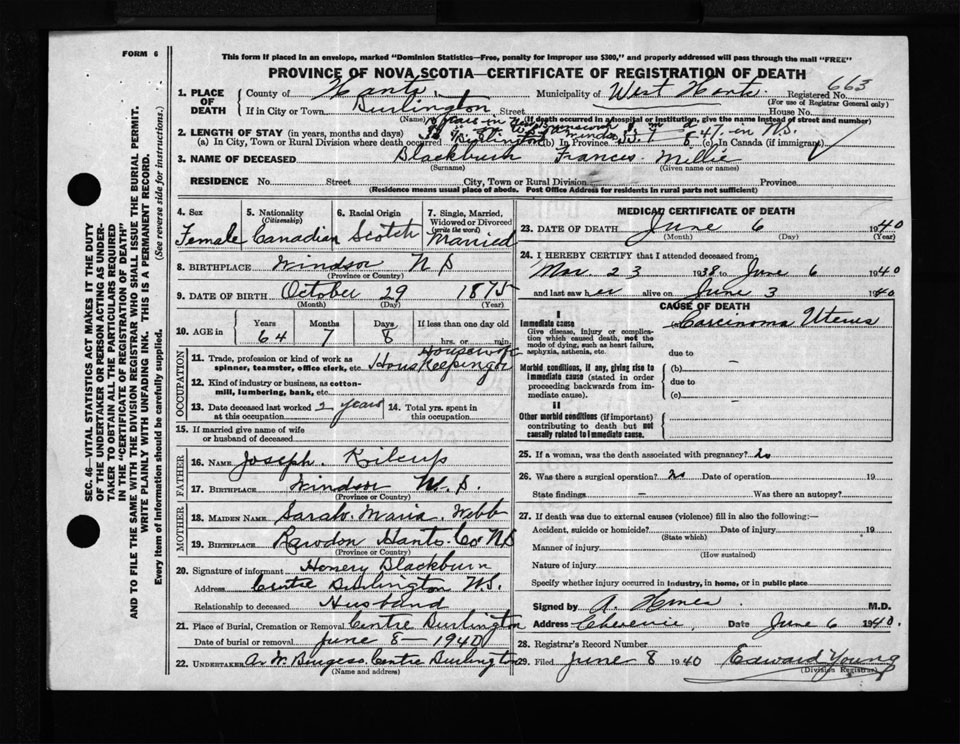 FORM 6
This form if placed in an envelope, marked "Dominion Statistics—Free, penalty for improper use $300," and properly addressed will pass through the mail "FREE"
PROVINCE OF NOVA SCOTIA—CERTIFICATE OF REGISTRATION OF DEATH
1. PLACE OF DEATH
County of Hants Municipality of West Hants Registered No. 663
(For use of Registrar General only)
If in City or Town Burlington Street House No.
(Name) (If death occurred in a hospital or institution, give the name instead of street and number)
2. LENGTH OF STAY (in years, months and days)
(a) In City, Town or Rural Division where death occurred Burlington (b) In Province (c) In Canada (if immigrant)
3. NAME OF DECEASED Blackburn Frances Millie
(Surname) (Given name or names)
RESIDENCE No. Street City, Town or Rural Division Province
(Residence means usual place of abode. Post Office Address for residents in rural parts not sufficient)
4. Sex Female
5. Nationality (Citizenship) Canadian
6. Racial Origin Scotch
7. Single, Married, Widowed or Divorced (write the word) Married
8. BIRTHPLACE Windsor N S
(Province or Country)
9. DATE OF BIRTH October 29 1875
(Month) (Day) (Year)
10. AGE in Years 64 Months 7 Days 8 If less than one day old hrs. or min.
OCCUPATION
11. Trade, profession or kind of work as spinner, teamster, office clerk, etc. Housework
12. Kind of industry or business, as cotton-mill, lumbering, bank, etc.
13. Date deceased last worked at this occupation 2 years 14. Total yrs. spent in this occupation
15. If married give name of wife or husband of deceased
FATHER
16. NAME Joseph Kilcup
17. BIRTHPLACE Windsor N.S.
(Province or Country)
MOTHER
18. MAIDEN NAME Sarah Maria Webb
19. BIRTHPLACE Rawdon Hants Co N S
(Province or Country)
20. Signature of informant Henery Blackburn
Address Centre Burlington N.S.
Relationship to deceased Husband
21. Place of Burial, Cremation or Removal Centre Burlington
Date of burial or removal June 8 — 1940
22. UNDERTAKER A. W. Burgess Centre Burlington
(Name and address)
MEDICAL CERTIFICATE OF DEATH
23. DATE OF DEATH June 6 1940
(Month) (Day) (Year)
24. I HEREBY CERTIFY that I attended deceased from:
Mar. 23 1938 to June 6 1940
and last saw her alive on June 3 1940
CAUSE OF DEATH
I
Immediate cause Carcinoma Uterus
Give disease, injury or complication which caused death, not the mode of dying, such as heart failure, asphyxia, asthenia, etc.
due to
Morbid conditions, if any, giving rise to immediate cause (stated in order proceeding backwards from immediate cause).
(b)
due to
(c)
II
Other morbid conditions (if important) contributing to death but not causally related to immediate cause.
25. If a woman, was the death associated with pregnancy? No
26. Was there a surgical operation? No Date of operation 19
State findings — Was there an autopsy?
27. If death was due to external causes (violence) fill in also the following:—
Accident, suicide or homicide? Date of injury 19
(State which)
Manner of injury
(How sustained)
Nature of injury
Specify whether injury occurred in industry, in home, or in public place
Signed by M.D.
Address Cheverie, Date June 6 1940.
28. Registrar's Record Number
29. Filed June 8 1940 Edward Young
(Division Registrar)
SEC. 46—VITAL STATISTICS ACT MAKES IT THE DUTY
OF THE UNDERTAKER OR PERSON ACTING AS UNDER-
TAKER TO OBTAIN ALL THE PARTICULARS REQUIRED
IN THE "CERTIFICATE OF REGISTRATION OF DEATH"
AND TO FILE THE SAME WITH THE DIVISION REGISTRAR WHO SHALL ISSUE THE BURIAL PERMIT.
WRITE PLAINLY WITH UNFADING INK. THIS IS A PERMANENT RECORD.
Every item of information should be carefully supplied. (See reverse side for instructions.)